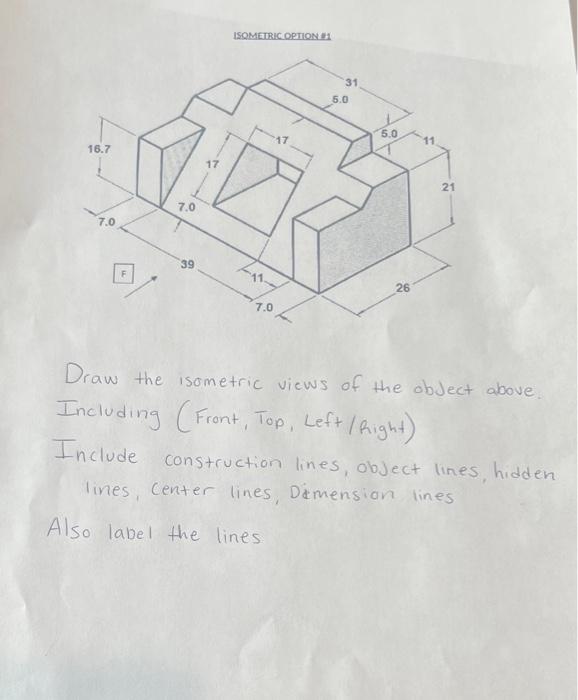 ISOMETRIC OPTION #1
31
5.0
5.0
11
17
16.7
17
21
7.0
7.0
39
F
11
26
7.0
Draw the isometric views of the object above.
Including (Front, Top, Left/Right)
Include construction lines, object lines, hidden
lines, Center lines, Dimension lines
Also label the lines